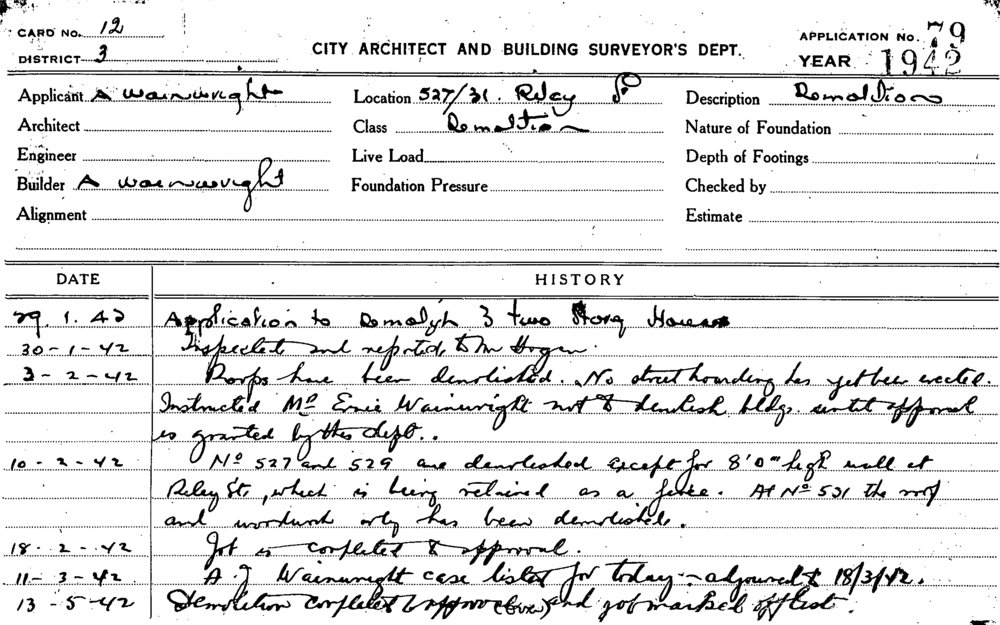 CARD NO. 12
DISTRICT 3
CITY ARCHITECT AND BUILDING SURVEYOR'S DEPT.
APPLICATION NO. 79
YEAR 1942
Applicant A Wainwright
Location 527/31. Riley St
Description Demolition
Architect
Class Demolition
Nature of Foundation
Engineer
Live Load
Depth of Footings
Builder A Wainwright
Foundation Pressure
Checked by
Alignment
Estimate
DATE HISTORY
29. 1. 42 Application to Demolish 3 two Storey Houses
30-1-42 Inspected and reported to Mr Hogan.
3-2-42 Roofs have been demolished. No street hoarding has yet been erected.
Instructed Mr Ernie Wainwright not to demolish bldgs. until approval
is granted by this dept..
10-2-42 No 527 and 529 are demolished except for 8'0" high wall at
Riley St., which is being retained as a fence. At No 531 the roof
and woodwork only has been demolished.
18-2-42 Job is completed to approval.
11-3-42 A. J. Wainwright case listed for today - adjourned to 18/3/42.
13-5-42 Demolition completed to approval (over) and job marked off list.